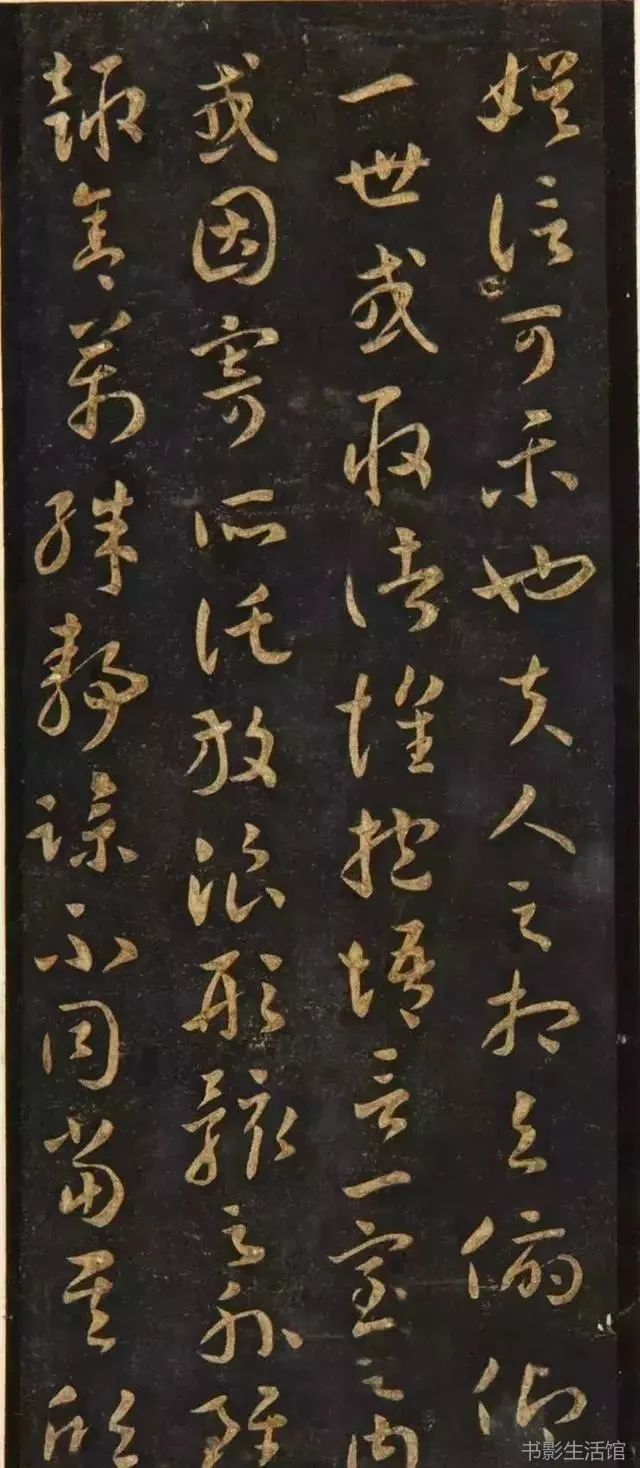 娛信可樂也夫人之相與俯仰
一世或取諸懷抱悟言一室之内
或因寄所託放浪形骸之外雖
趣舍萬殊靜躁不同當其欣
书影生活馆